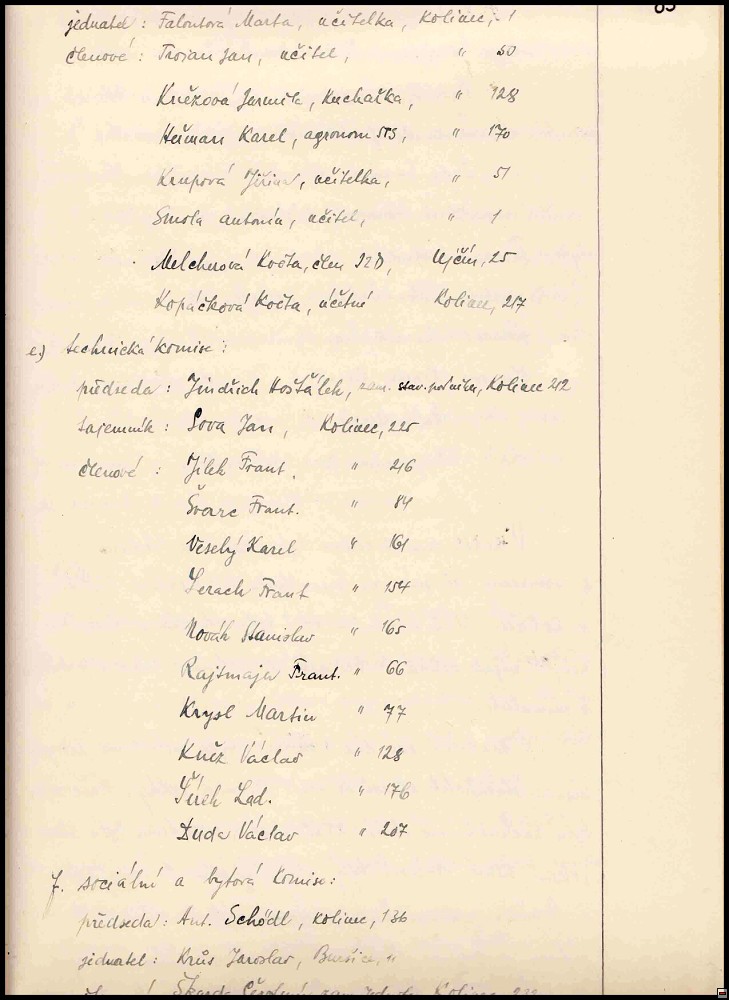 jednatel: Faloutová Marta, učitelka, Kolinec, 1
členové: Trojan Jan, učitel, " 50
Kněžová Jarmila, Kuchařka, " 128
Heřman Karel, agronom STS, " 170
Krupová Jiřina, učitelka, " 51
Smola Antonín, učitel, " 1
Melcherová Květa, člen JZD, Ujčín, 25
Kopáčková Květa, účetní Kolinec, 217
e.) technická komise:
předseda: Jindřich Hošťálek, zam. stav. podniku, Kolinec 212
tajemník: Sova Jan, Kolinec, 225
členové: Jílek Frant. " 216
Švarc Frant. " 84
Veselý Karel " 161
Frant " 154
Novák Stanislav " 165
Rajtmajer Frant. " 66
Krysl Martin " 77
Kněz Václav " 128
Lad. " 176
Duda Václav " 207
f. sociální a bytová komise:
předseda: Ant. Schödl, Kolinec, 136
jednatel: Krůs Jaroslav,